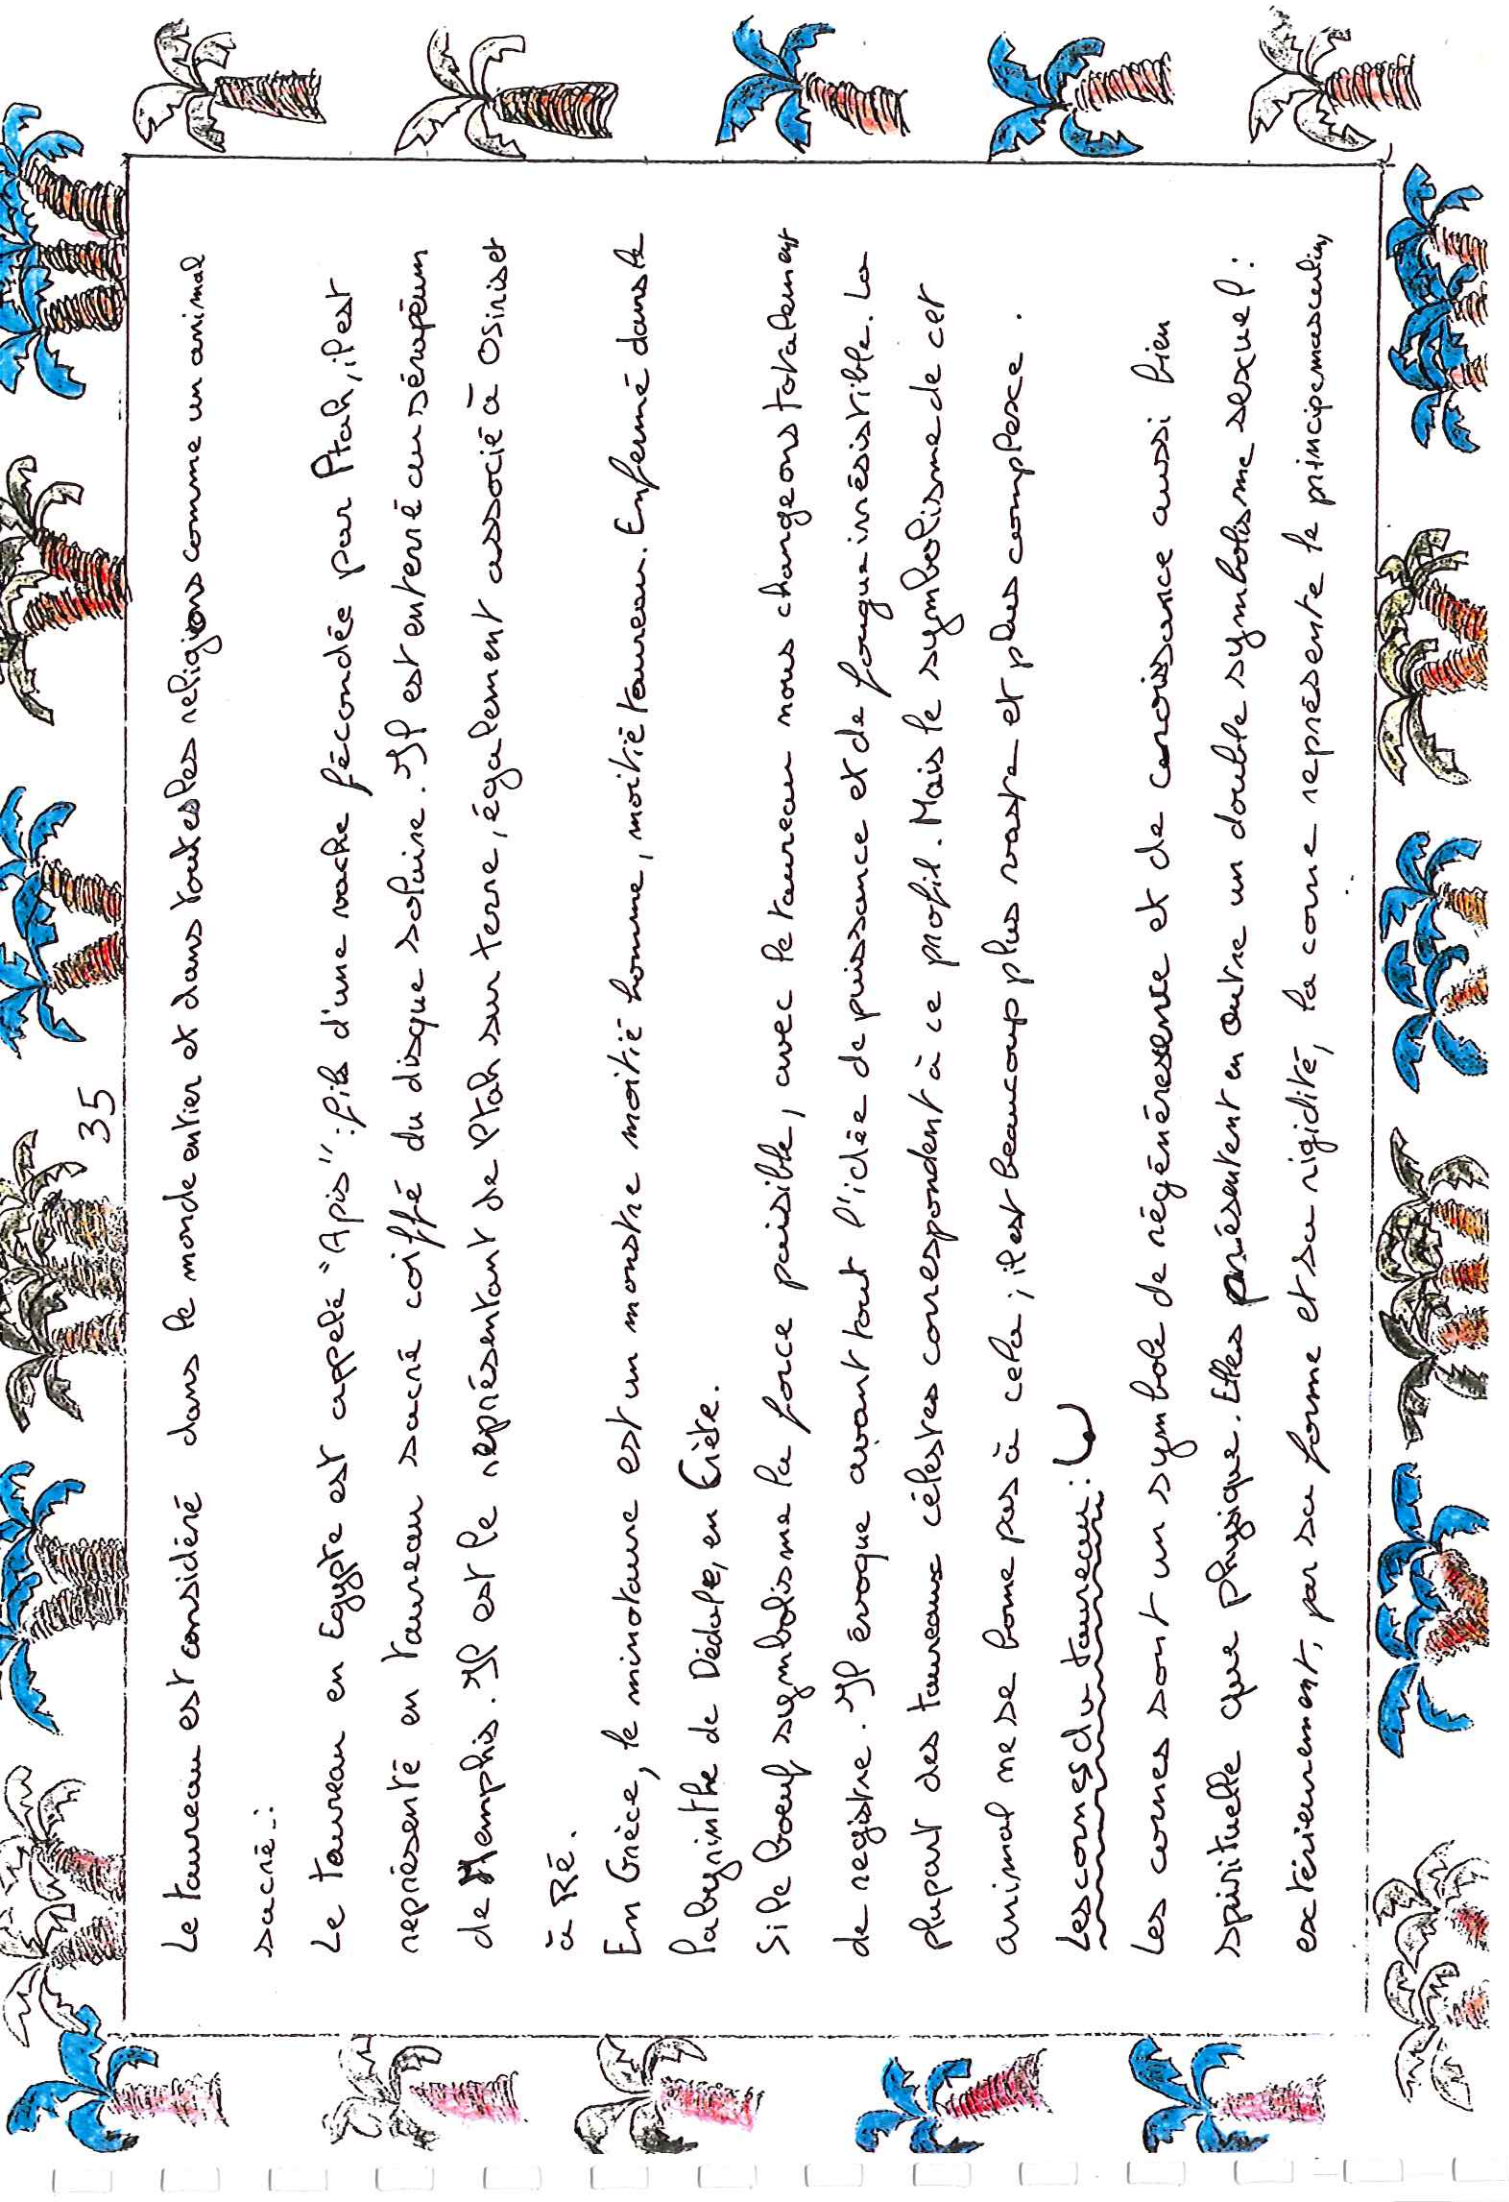 35
Le taureau est considéré dans le monde entier et dans toutes les religions comme un animal
sacré.:
Le taureau en Egypte est appelé "Apis": fils d'une vache fécondée par Ptah, il est
représenté en taureau sacré coiffé du disque solaire. Il est enterré au sérapéum
de Memphis. Il est le représentant de Ptah sur terre, également associé à Osiris et
à Ré.
En Grèce, le minotaure est un monstre moitié homme, moitié taureau. Enfermé dans le
labyrinthe de Dédale, en Crète.
Si le boeuf symbolisme la force paisible, avec le taureau nous changeons totalement
de registre. Il évoque avant tout l'idée de puissance et de fougue irrésistible. La
plupart des taureaux célestes correspondent à ce profil. Mais le symbolisme de cet
animal ne se borne pas à cela; il est beaucoup plus vaste et plus complexe.
Les cornes du taureau:
Les cornes sont un symbole de régénérescence et de croissance aussi bien
spirituelle que physique. Elles présentent en outre un double symbolisme sexuel:
extérieurement, par sa forme et sa rigidité, la corne représente le principe masculin,